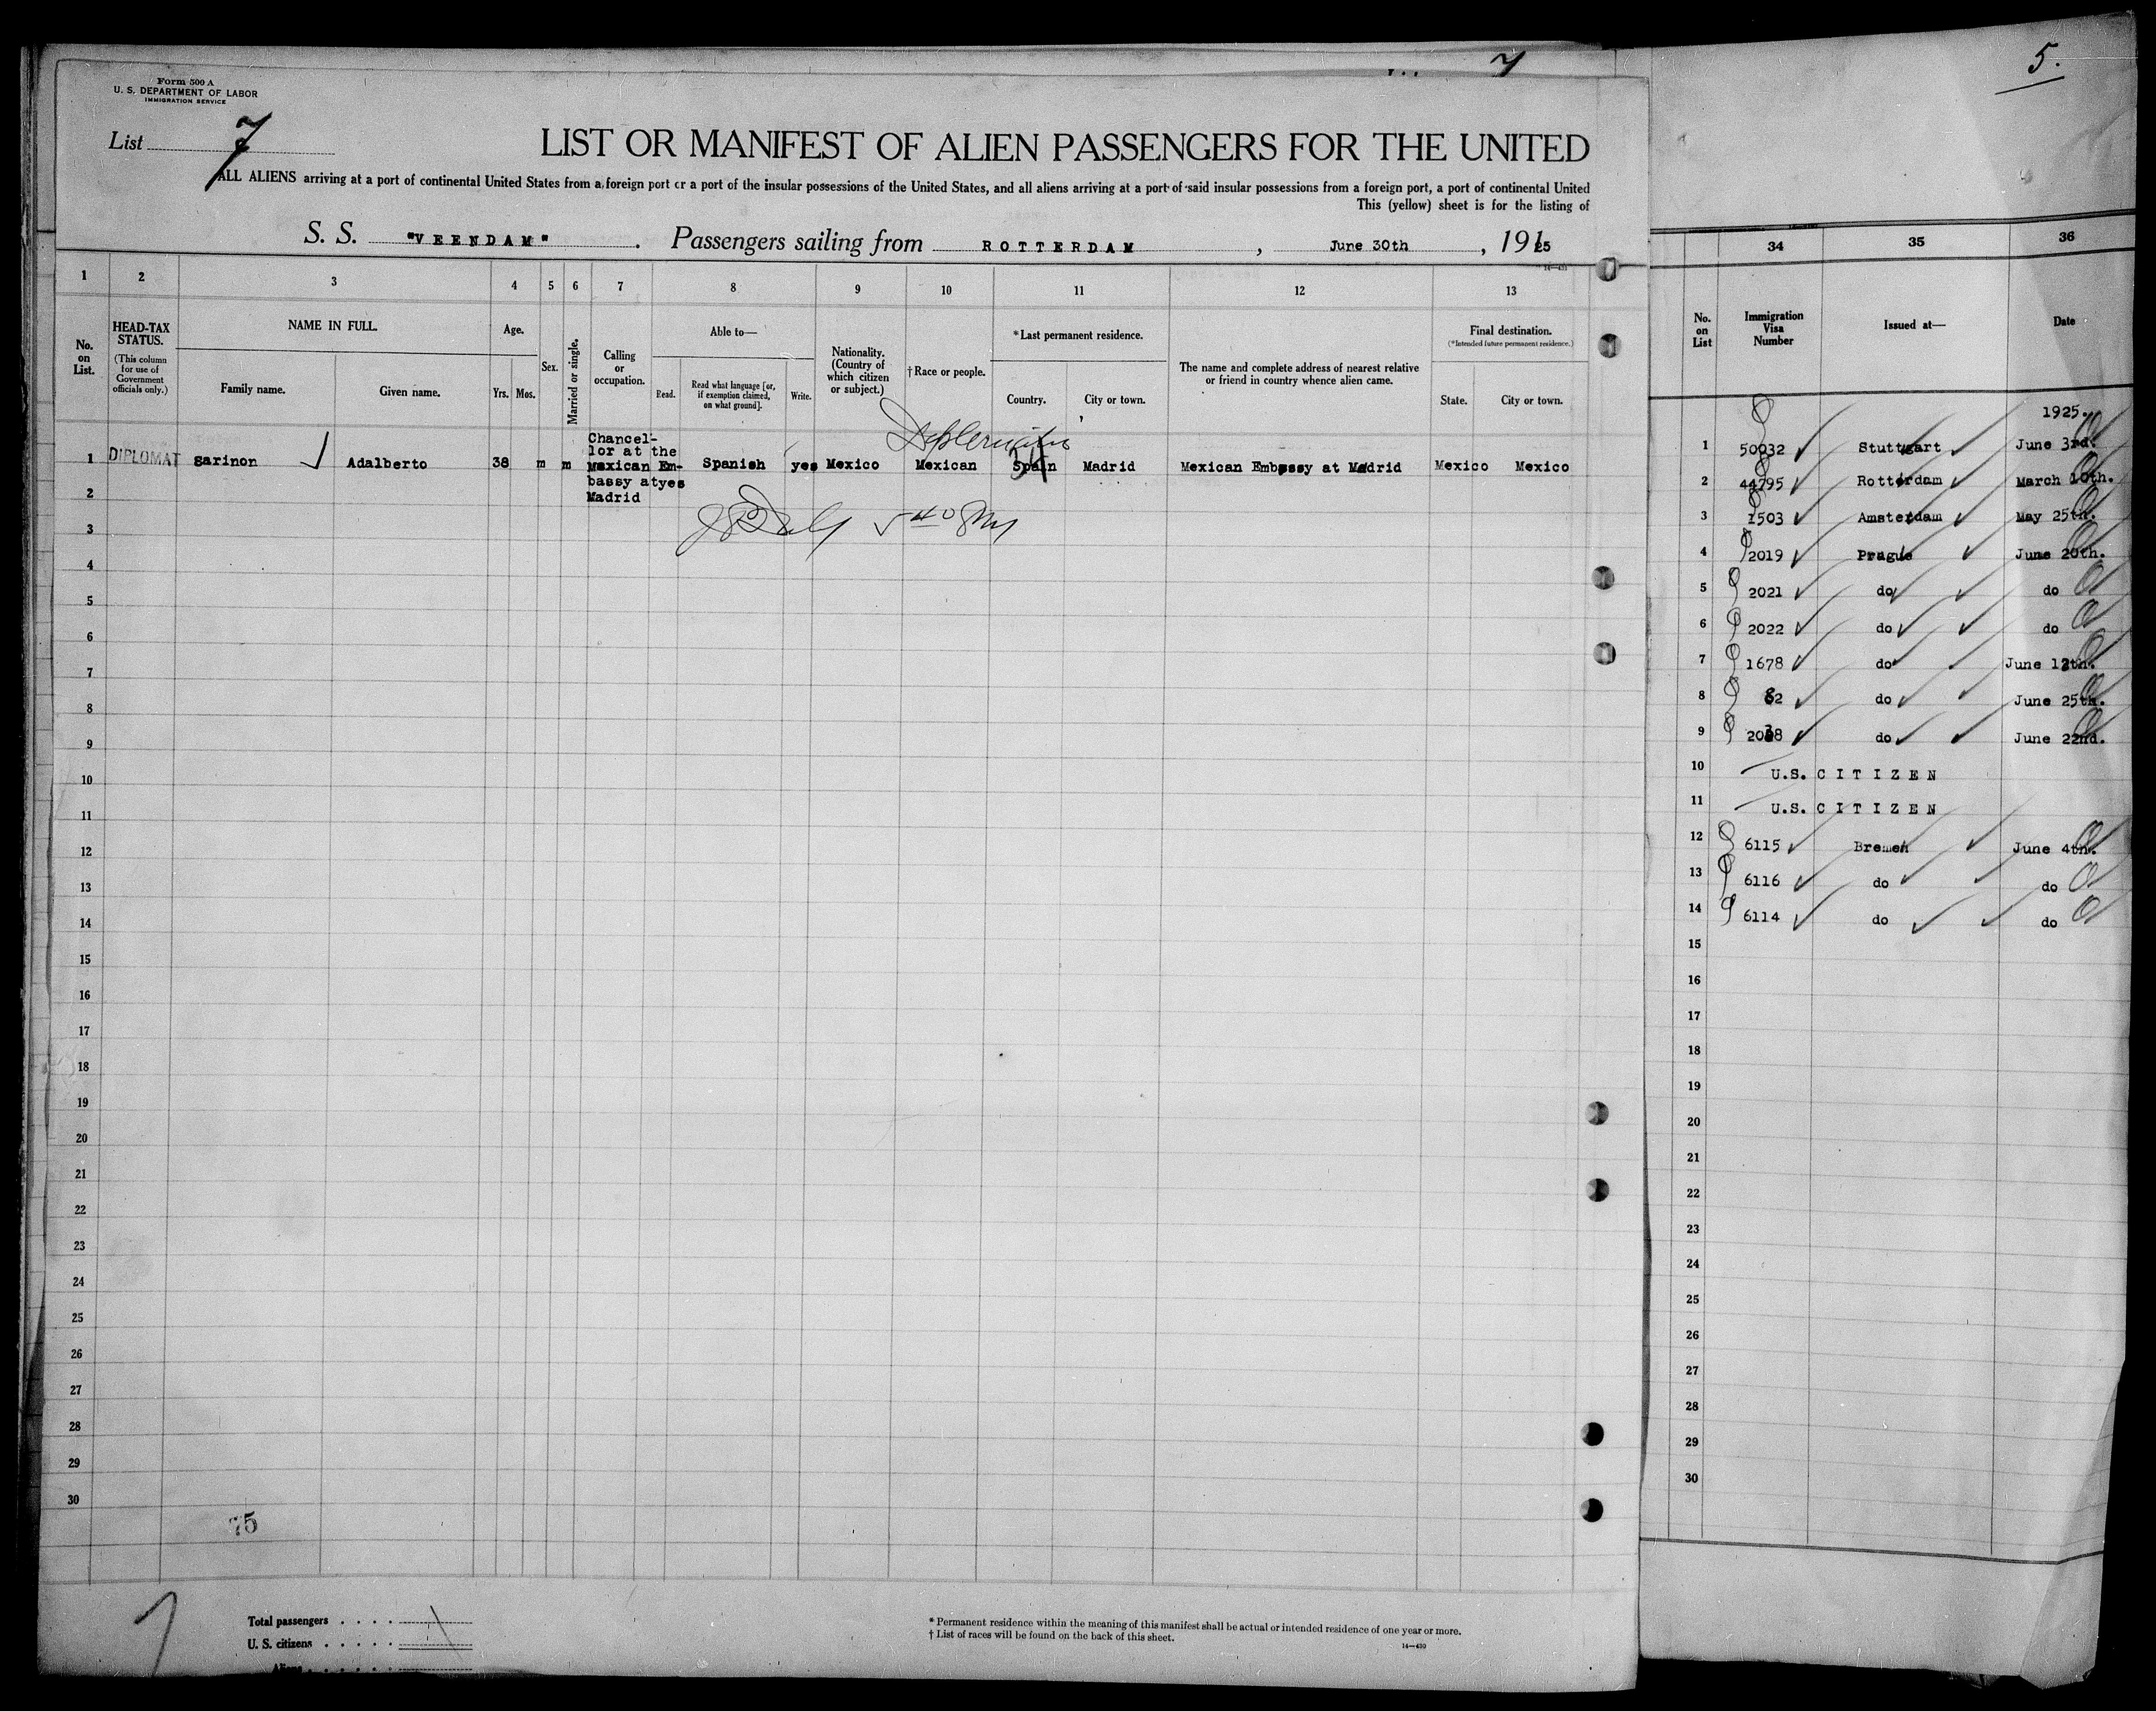 Form 500 A
U. S. DEPARTMENT OF LABOR
IMMIGRATION SERVICE
List 7
7
LIST OR MANIFEST OF ALIEN PASSENGERS FOR THE UNITED
ALL ALIENS arriving at a port of continental United States from a foreign port or a port of the insular possessions of the United States, and all aliens arriving at a port of said insular possessions from a foreign port, a port of continental United
This (yellow) sheet is for the listing of
S. S. "VEENDAM". Passengers sailing from ROTTERDAM, June 30th, 1925
14—431
1 2 3 4 5 6 7 8 9 10 11 12 13
No. on List.
HEAD-TAX STATUS.
(This column for use of Government officials only.)
NAME IN FULL.
Family name. Given name.
Age.
Yrs. Mos.
Sex.
Married or single.
Calling or occupation.
Able to—
Read. Read what language [or, if exemption claimed, on what ground]. Write.
Nationality. (Country of which citizen or subject.)
†Race or people.
*Last permanent residence.
Country. City or town.
The name and complete address of nearest relative or friend in country whence alien came.
Final destination.
(*Intended future permanent residence.)
State. City or town.
1 DIPLOMAT Sarinon Adalberto 38 m m Chancellor at the Mexican Embassy at Madrid yes Spanish yes Mexico Mexican Spain Madrid Mexican Embassy at Madrid Mexico Mexico
2
3
4
5
6
7
8
9
10
11
12
13
14
15
16
17
18
19
20
21
22
23
24
25
26
27
28
29
30
75
Total passengers
U. S. citizens
Aliens
* Permanent residence within the meaning of this manifest shall be actual or intended residence of one year or more.
† List of races will be found on the back of this sheet.
14—430
5.
34 35 36
No. on List
Immigration Visa Number
Issued at—
Date
1925.
1 50032 Stuttgart June 3rd.
2 44795 Rotterdam March 10th.
3 1503 Amsterdam May 25th.
4 2019 Prague June 20th.
5 2021 do do
6 2022 do do
7 1678 do June 12th.
8 82 do June 25th.
9 2038 do June 22nd.
10 U.S. CITIZEN
11 U.S. CITIZEN
12 6115 Bremen June 4th.
13 6116 do do
14 6114 do do
15
16
17
18
19
20
21
22
23
24
25
26
27
28
29
30